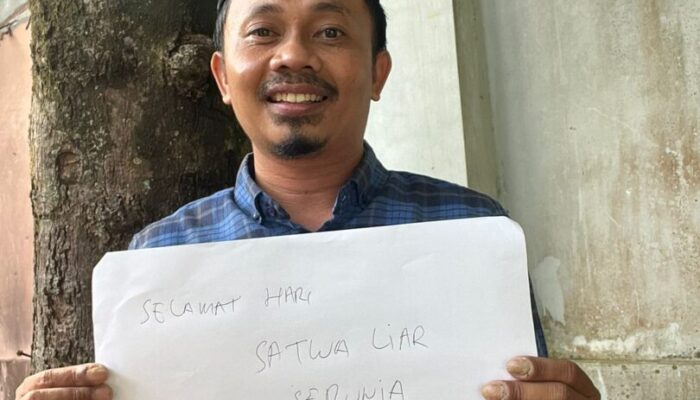 SELAMAT HARI
SATWA LIAR
SEDUNIA